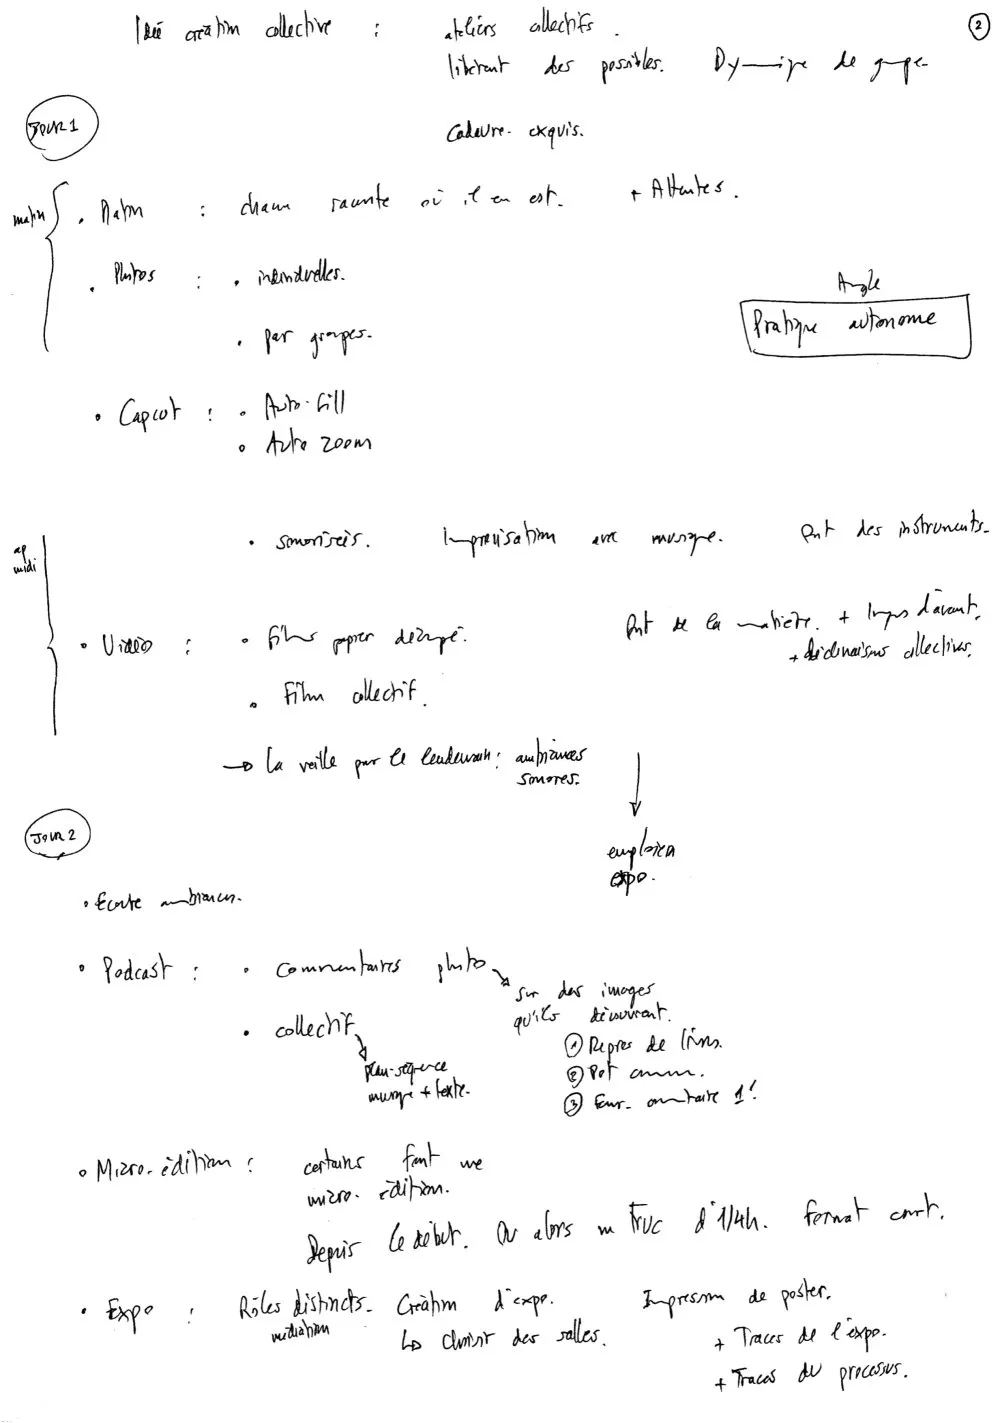 Idée création collective : ateliers collectifs. ②
libérant des possibles. Dynamique de groupe
Cadavre-exquis.
JOUR 1
matin
• Matin : chacun raconte où il en est. + Attentes.
• Photos : • individuelles.
Angle
Pratique autonome
• par groupes.
• Capcut : • Auto-fill
• Auto zoom
ap midi
• sonorisés. Improvisation avec musique. Ont des instruments.
• Vidéo : • films papier découpé. Ont de la matière. + d'avant.
+ déclinaisons collectives.
• Film collectif.
→ La veille pour le lendemain : ambiances
sonores.
JOUR 2
expo.
• Écoute ambiances.
• Podcast : • commentaires photo
sur des images
qu'ils découvrent.
• collectif
① Repros de livres.
plan-séquence
② Pot commun.
musique + texte.
③ commentaire 1'
• Micro-édition : certains font une
micro-édition.
Depuis le début. Ou alors un truc d'1/4h. Format court.
• Expo : Rôles distincts. Création d'expo. Impression de poster.
médiation
↳ Choisir des salles. + Traces de l'expo.
+ Traces du processus.